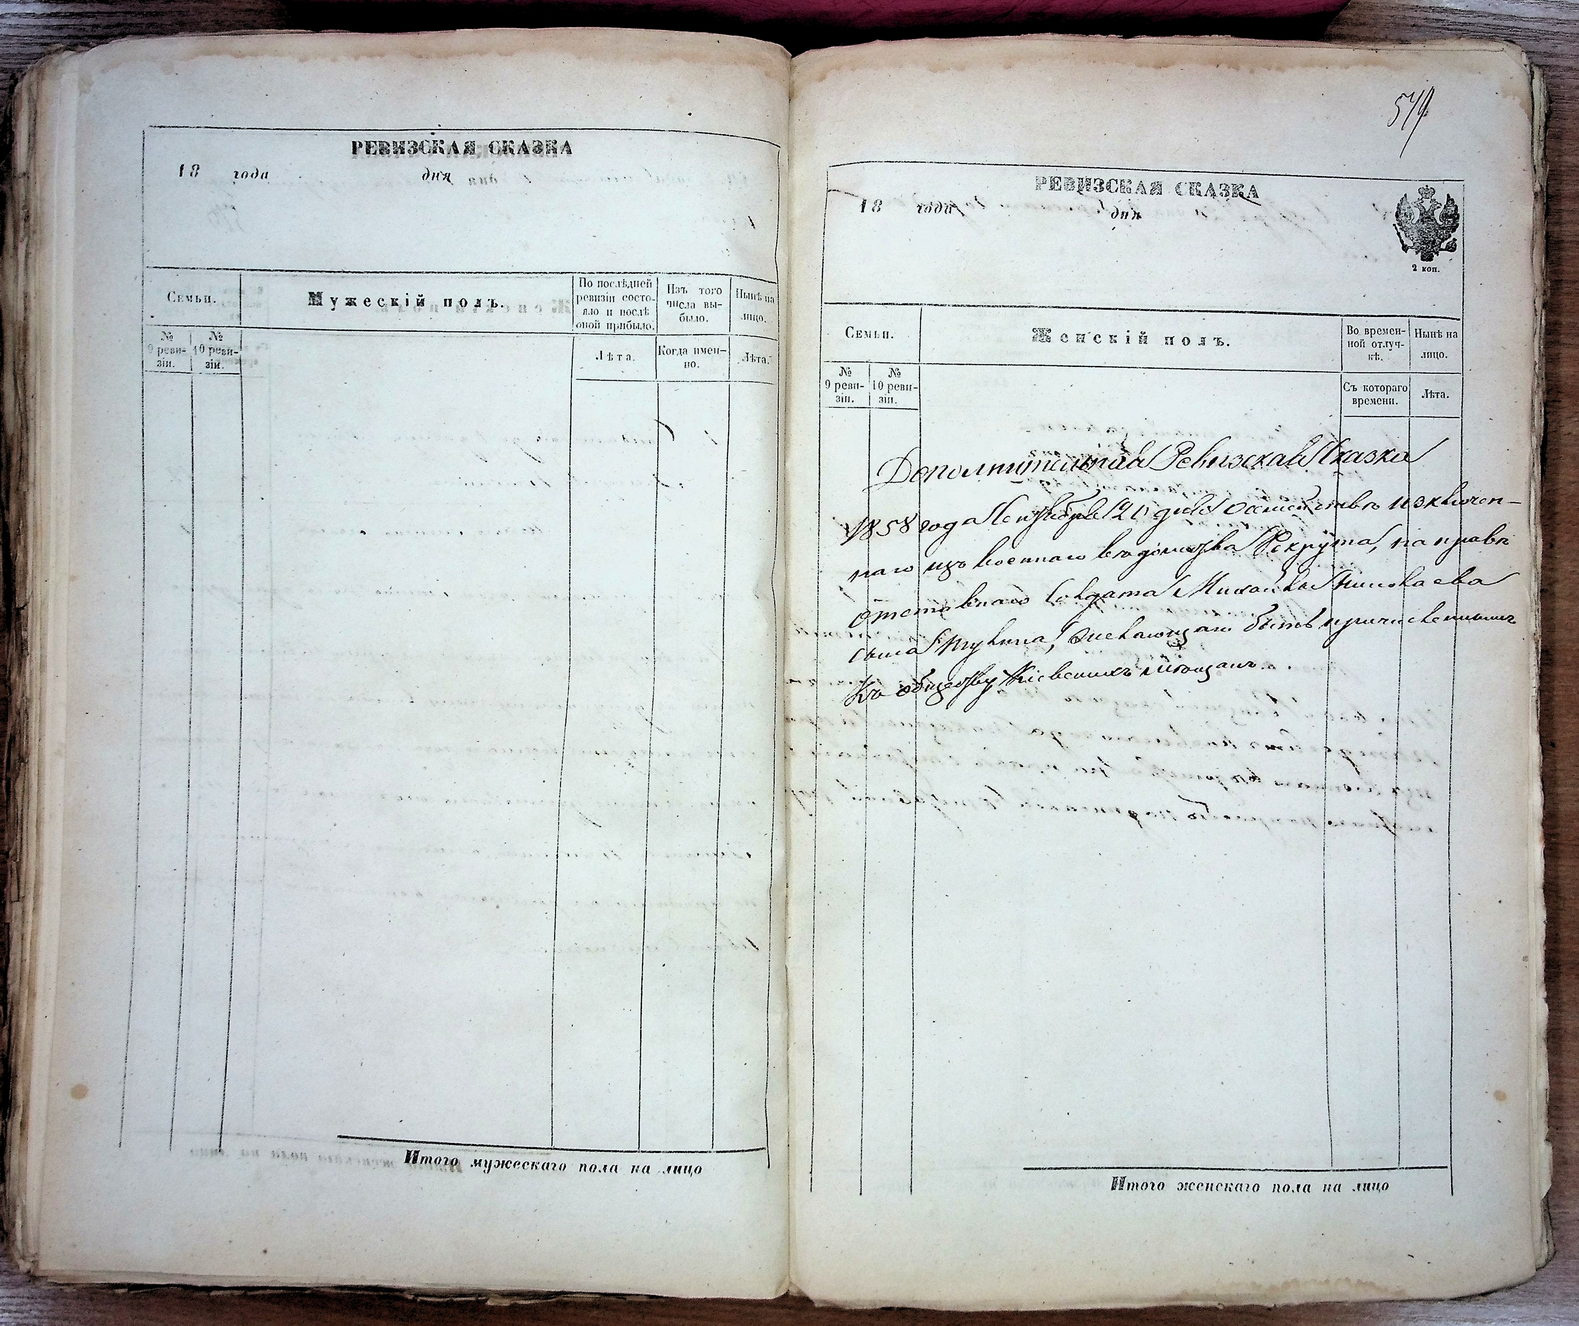 РЕВИЗСКАЯ СКАЗКА
18 года дня
Семьи.
Мужескій полъ.
По послѣдней ревизіи состояло и послѣ оной прибыло.
Изъ того числа выбыло.
Нынѣ на лицо.
№ 9 ревизіи.
№ 10 ревизіи.
Лѣта.
Когда именно.
Лѣта.
Итого мужескаго пола на лицо
РЕВИЗСКАЯ СКАЗКА
18 года дня
2 коп.
Семьи.
Женскій полъ.
Во временной отлучкѣ.
Нынѣ на лицо.
№ 9 ревизіи.
№ 10 ревизіи.
Съ котораго времени.
Лѣта.
Дополнительная Ревизская Сказка
1858 года Сентября дня О семействѣ изключен-
наго изъ военнаго вѣдомства Рекрута, на правѣ
отставнаго Солдата Михаила Николаева
сына желающаго быть причисленнымъ
къ обществу Кіевскихъ мѣщанъ.
Итого женскаго пола на лицо